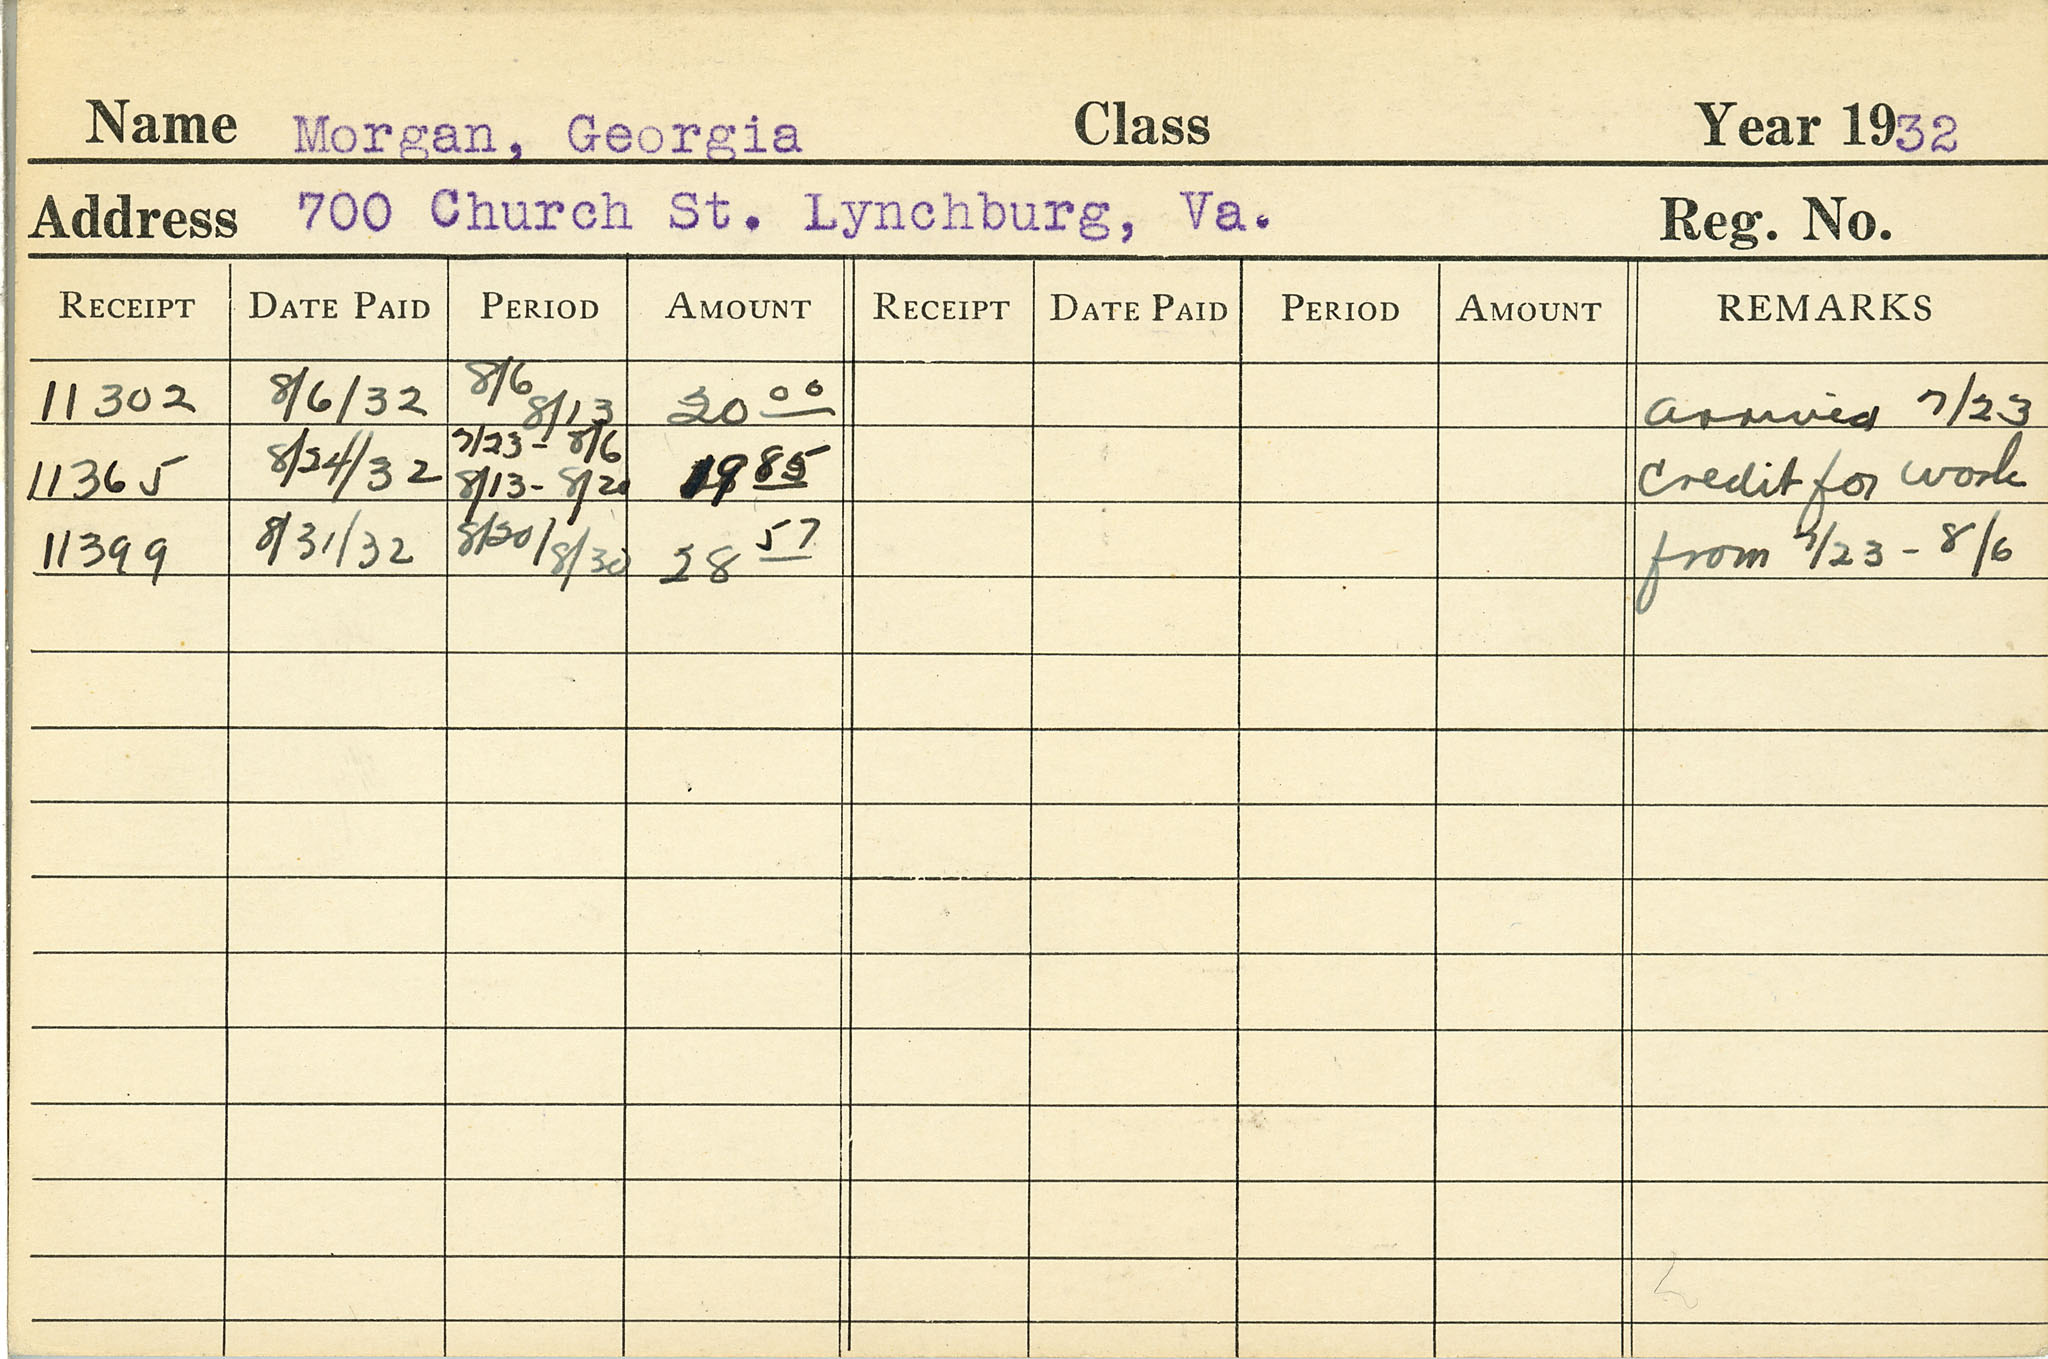 Name Morgan, Georgia Class Year 1932
Address 700 Church St. Lynchburg, Va. Reg. No.
RECEIPT DATE PAID PERIOD AMOUNT RECEIPT DATE PAID PERIOD AMOUNT REMARKS
11302 8/6/32 8/6 8/13 20 00 arrived 7/23
11365 8/24/32 7/23 - 8/6 8/13 - 8/20 19 85 Credit for work
11399 8/31/32 8/20/8/30 28 57 from 7/23 - 8/6